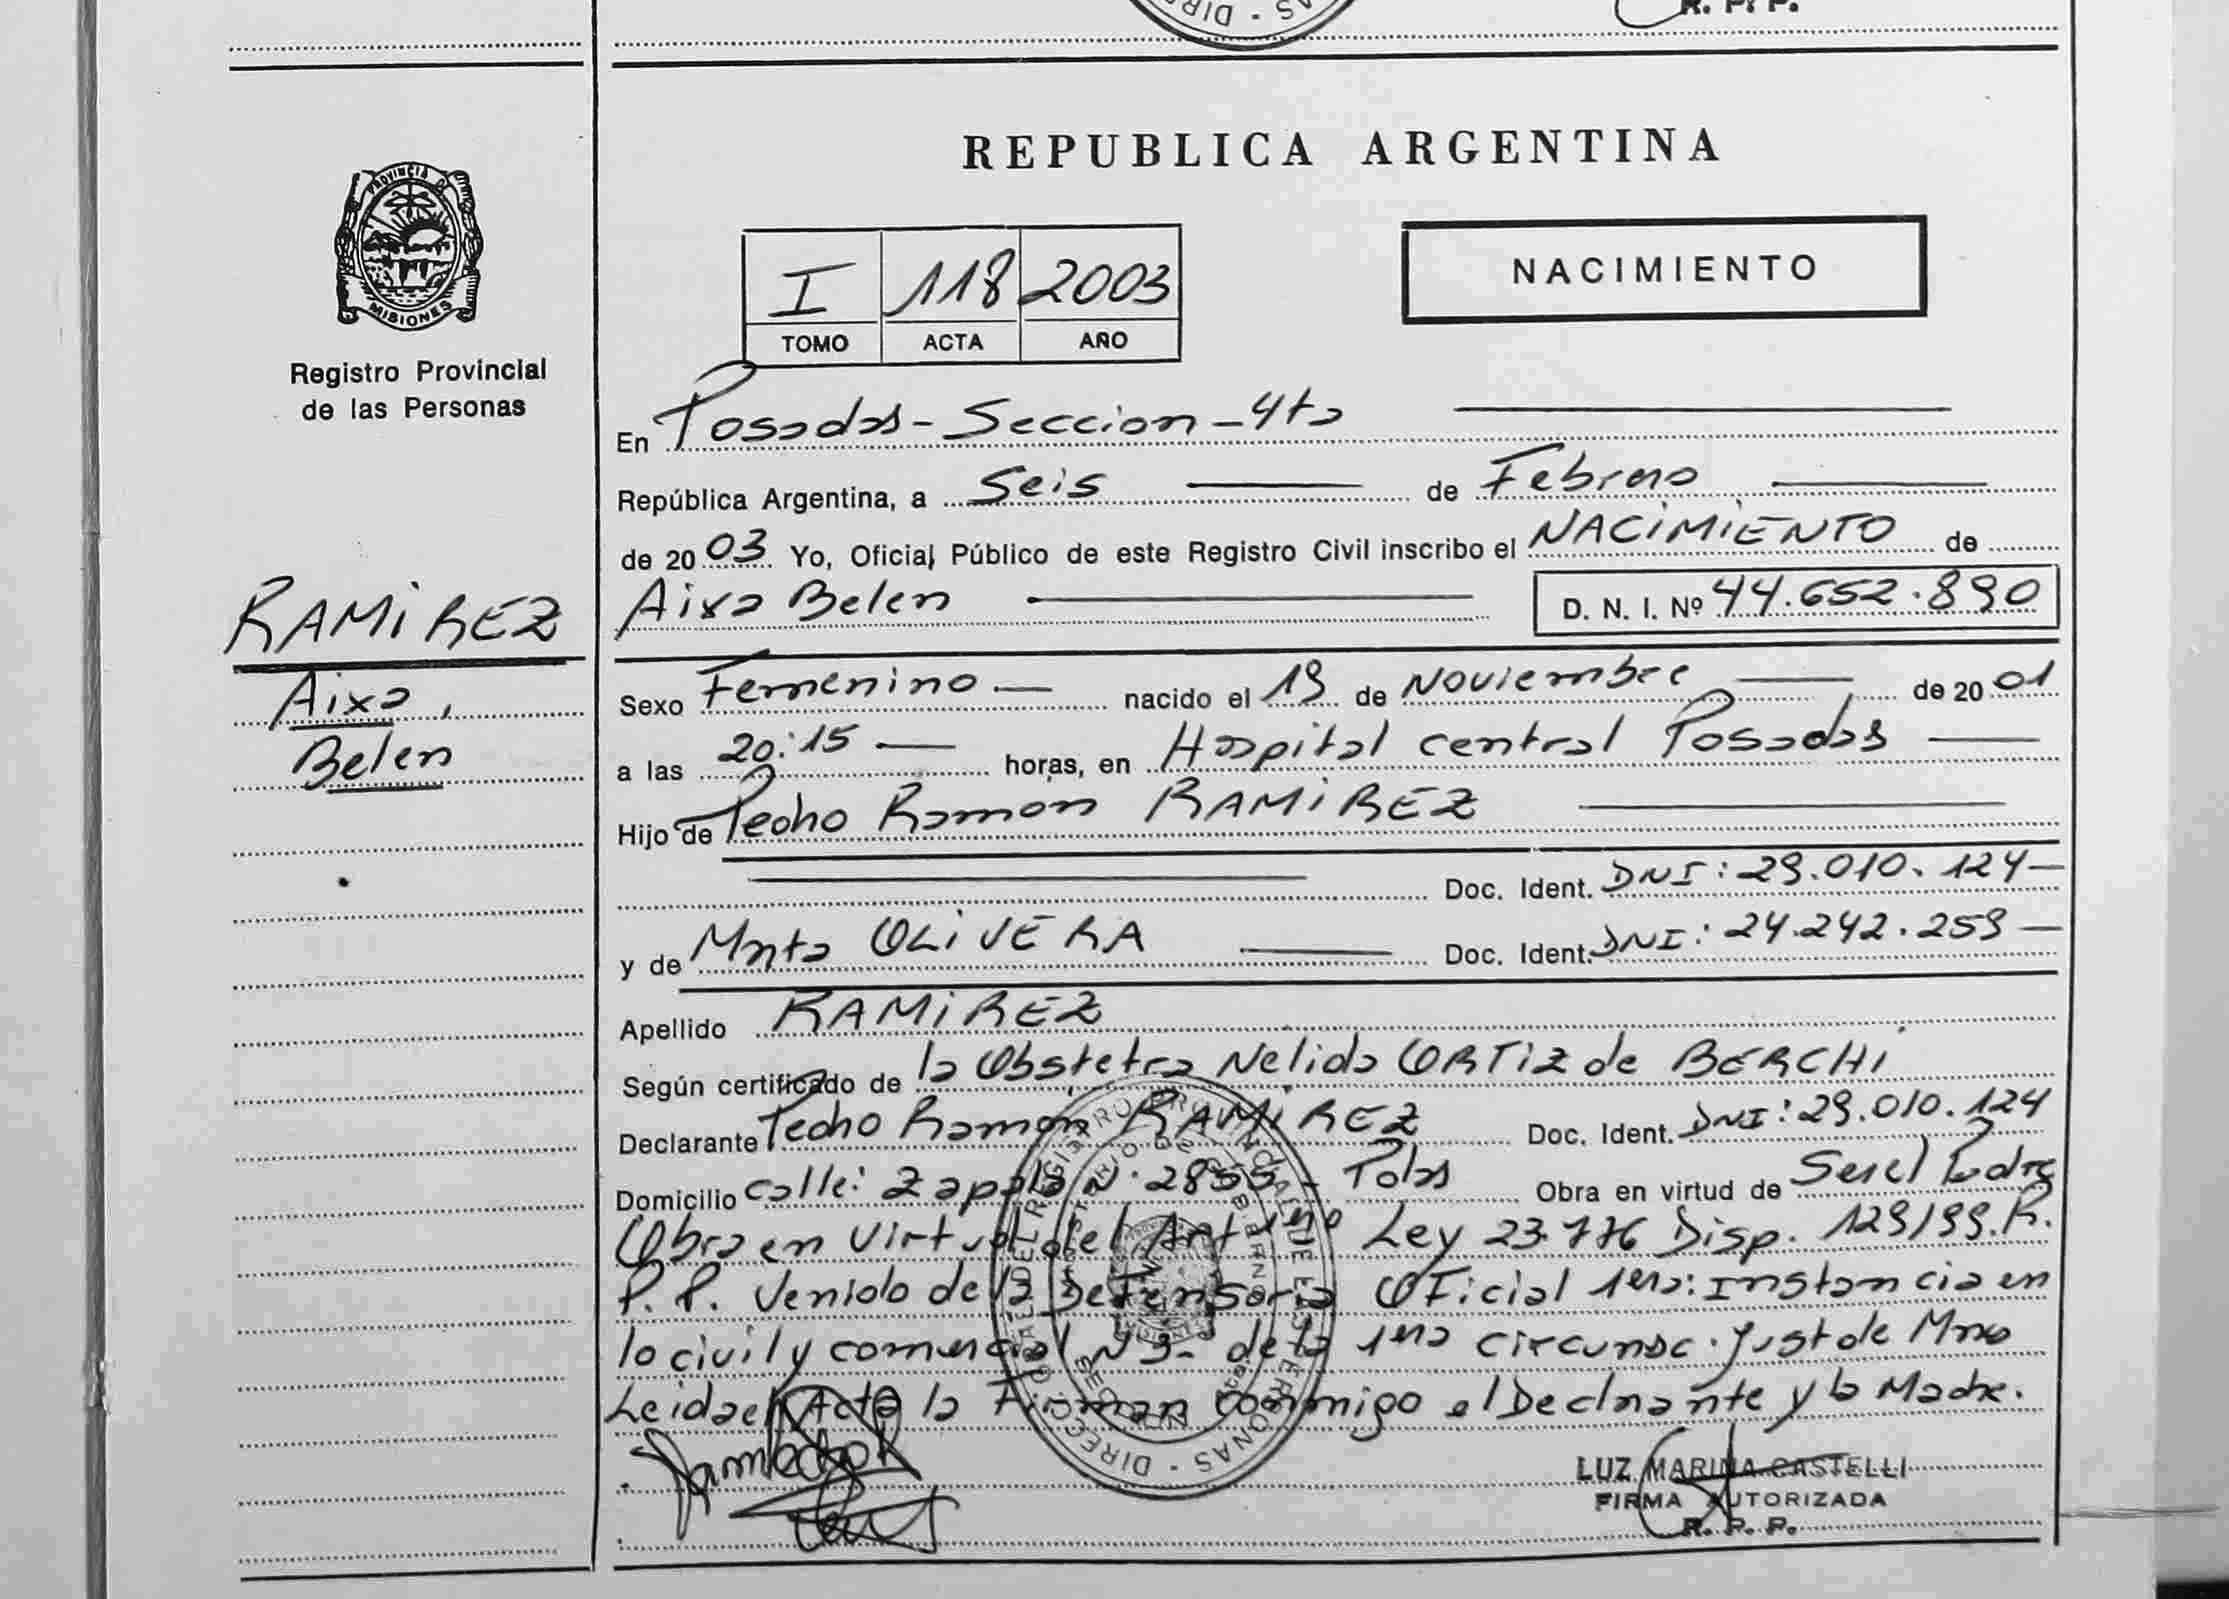 R. P. P.
REPUBLICA ARGENTINA
PROVINCIA DE
MISIONES
Registro Provincial
de las Personas
I 118 2003
TOMO ACTA AÑO
NACIMIENTO
En Posadas - Seccion - 4ta
República Argentina, a Seis de Febrero
de 2003 Yo, Oficial Público de este Registro Civil inscribo el NACIMIENTO de
RAMIREZ
Aixa,
Belen
Aixa Belen D. N. I. Nº 44.652.890
Sexo Femenino nacido el 19 de Noviembre de 2001
a las 20:15 horas, en Hospital central Posadas
Hijo de Pedro Ramon RAMIREZ
Doc. Ident. DNI: 29.010.124
y de Marta OLIVERA Doc. Ident. DNI: 24.242.259
Apellido RAMIREZ
Según certificado de la Obstetra Nelida ORTIZ de BERCHI
Declarante Pedro Ramon RAMIREZ Doc. Ident. DNI: 29.010.124
Domicilio calle: Zapala N. 2855 - Pdas Obra en virtud de Ser el Padre
Obra en Virtud del Art Ley 23.776 Disp. 129/99.R.
P.P. Venido de la Defensoria Oficial 1era: Instancia en
lo civil y comercial N 3 - de la 1era circunsc. Just de Mnes
Leida el Acta la Firman conmigo el Declarante y la Madre.
DIRECCION GRAL DEL REGISTRO PROVINCIAL DE LAS PERSONAS
LUZ MARINA CASTELLI
FIRMA AUTORIZADA
R. P. P.